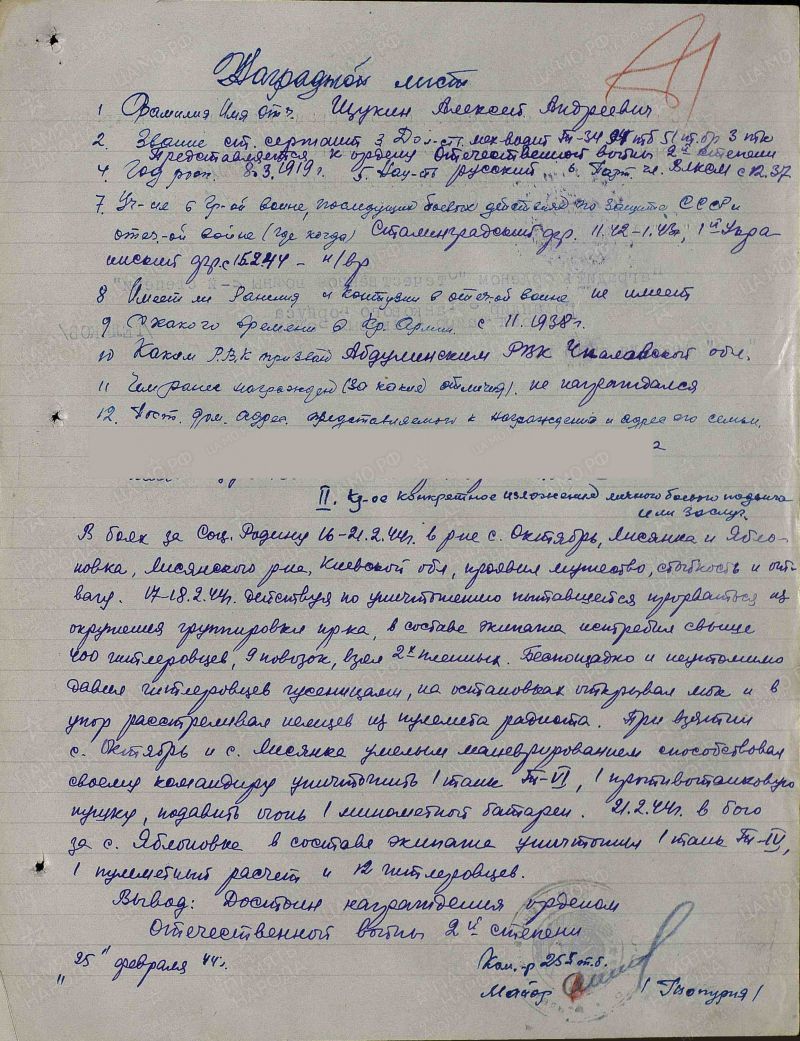 Наградной лист
1 Фамилия Имя отч. Щукин Алексей Андреевич
2. Звание ст. сержант 3 Дол-сть мех-водит Т-34 тб 51 тбр 3 тк
Представляется к ордену Отечественной войны 2й степени
4. Год рож. 8.3.1919г. 5 Нац-ть русский 6 Парт. чл. ВЛКСМ с 12.37
7. Уч-ие в гр-ой войне, последующих боевых действиях по защите СССР и
отеч-ой войне (где когда) Сталинградский фр. 11.42-1.43г, 1й Укра
инский фр. с 15.2.44 - н/вр
8 Имеет ли ранения и контузии в отеч-ой войне не имеет
9 С какого времени в Кр. Армии с 11.1938г.
10 Каким Р.В.К призван Абдулинским РВК Чкаловской обл.
11 Чем ранее награжден (за какие отличия). не награждался
12. Пост. дом. адрес представляемого к награждению и адрес его семьи.
2
II. Кр-ое конкретное изложение личного боевого подвига
или заслуг
В боях за Соц. Родину 16-21.2.44г. в р-не с. Октябрь, Лисянка и Ябло-
новка, Лисянского р-на, Киевской обл, проявил мужество, стойкость и от-
вагу. 17-18.2.44г. действуя по уничтожению пытавшейся прорваться из
окружения группировки пр-ка, в составе экипажа истребил свыше
400 гитлеровцев, 9 повозок, взял 2х пленных. Беспощадно и неутомимо
давил гитлеровцев гусеницами, на остановках открывал люк и в
упор расстреливал немцев из пулемета радиста. При взятии
с. Октябрь и с. Лисянка умелым маневрированием способствовал
своему командиру уничтожить 1 танк Т-VI, 1 противотанковую
пушку, подавить огонь 1 минометной батареи. 21.2.44г. в бою
за с. Яблоновка в составе экипажа уничтожил 1 танк Т-IV,
1 пулеметный расчет и 12 гитлеровцев.
Вывод: Достоин награждения орденом
Отечественной войны 2й степени
"25" февраля 44г.
Ком-р 255 т.б.
Майор /Гиопурия/